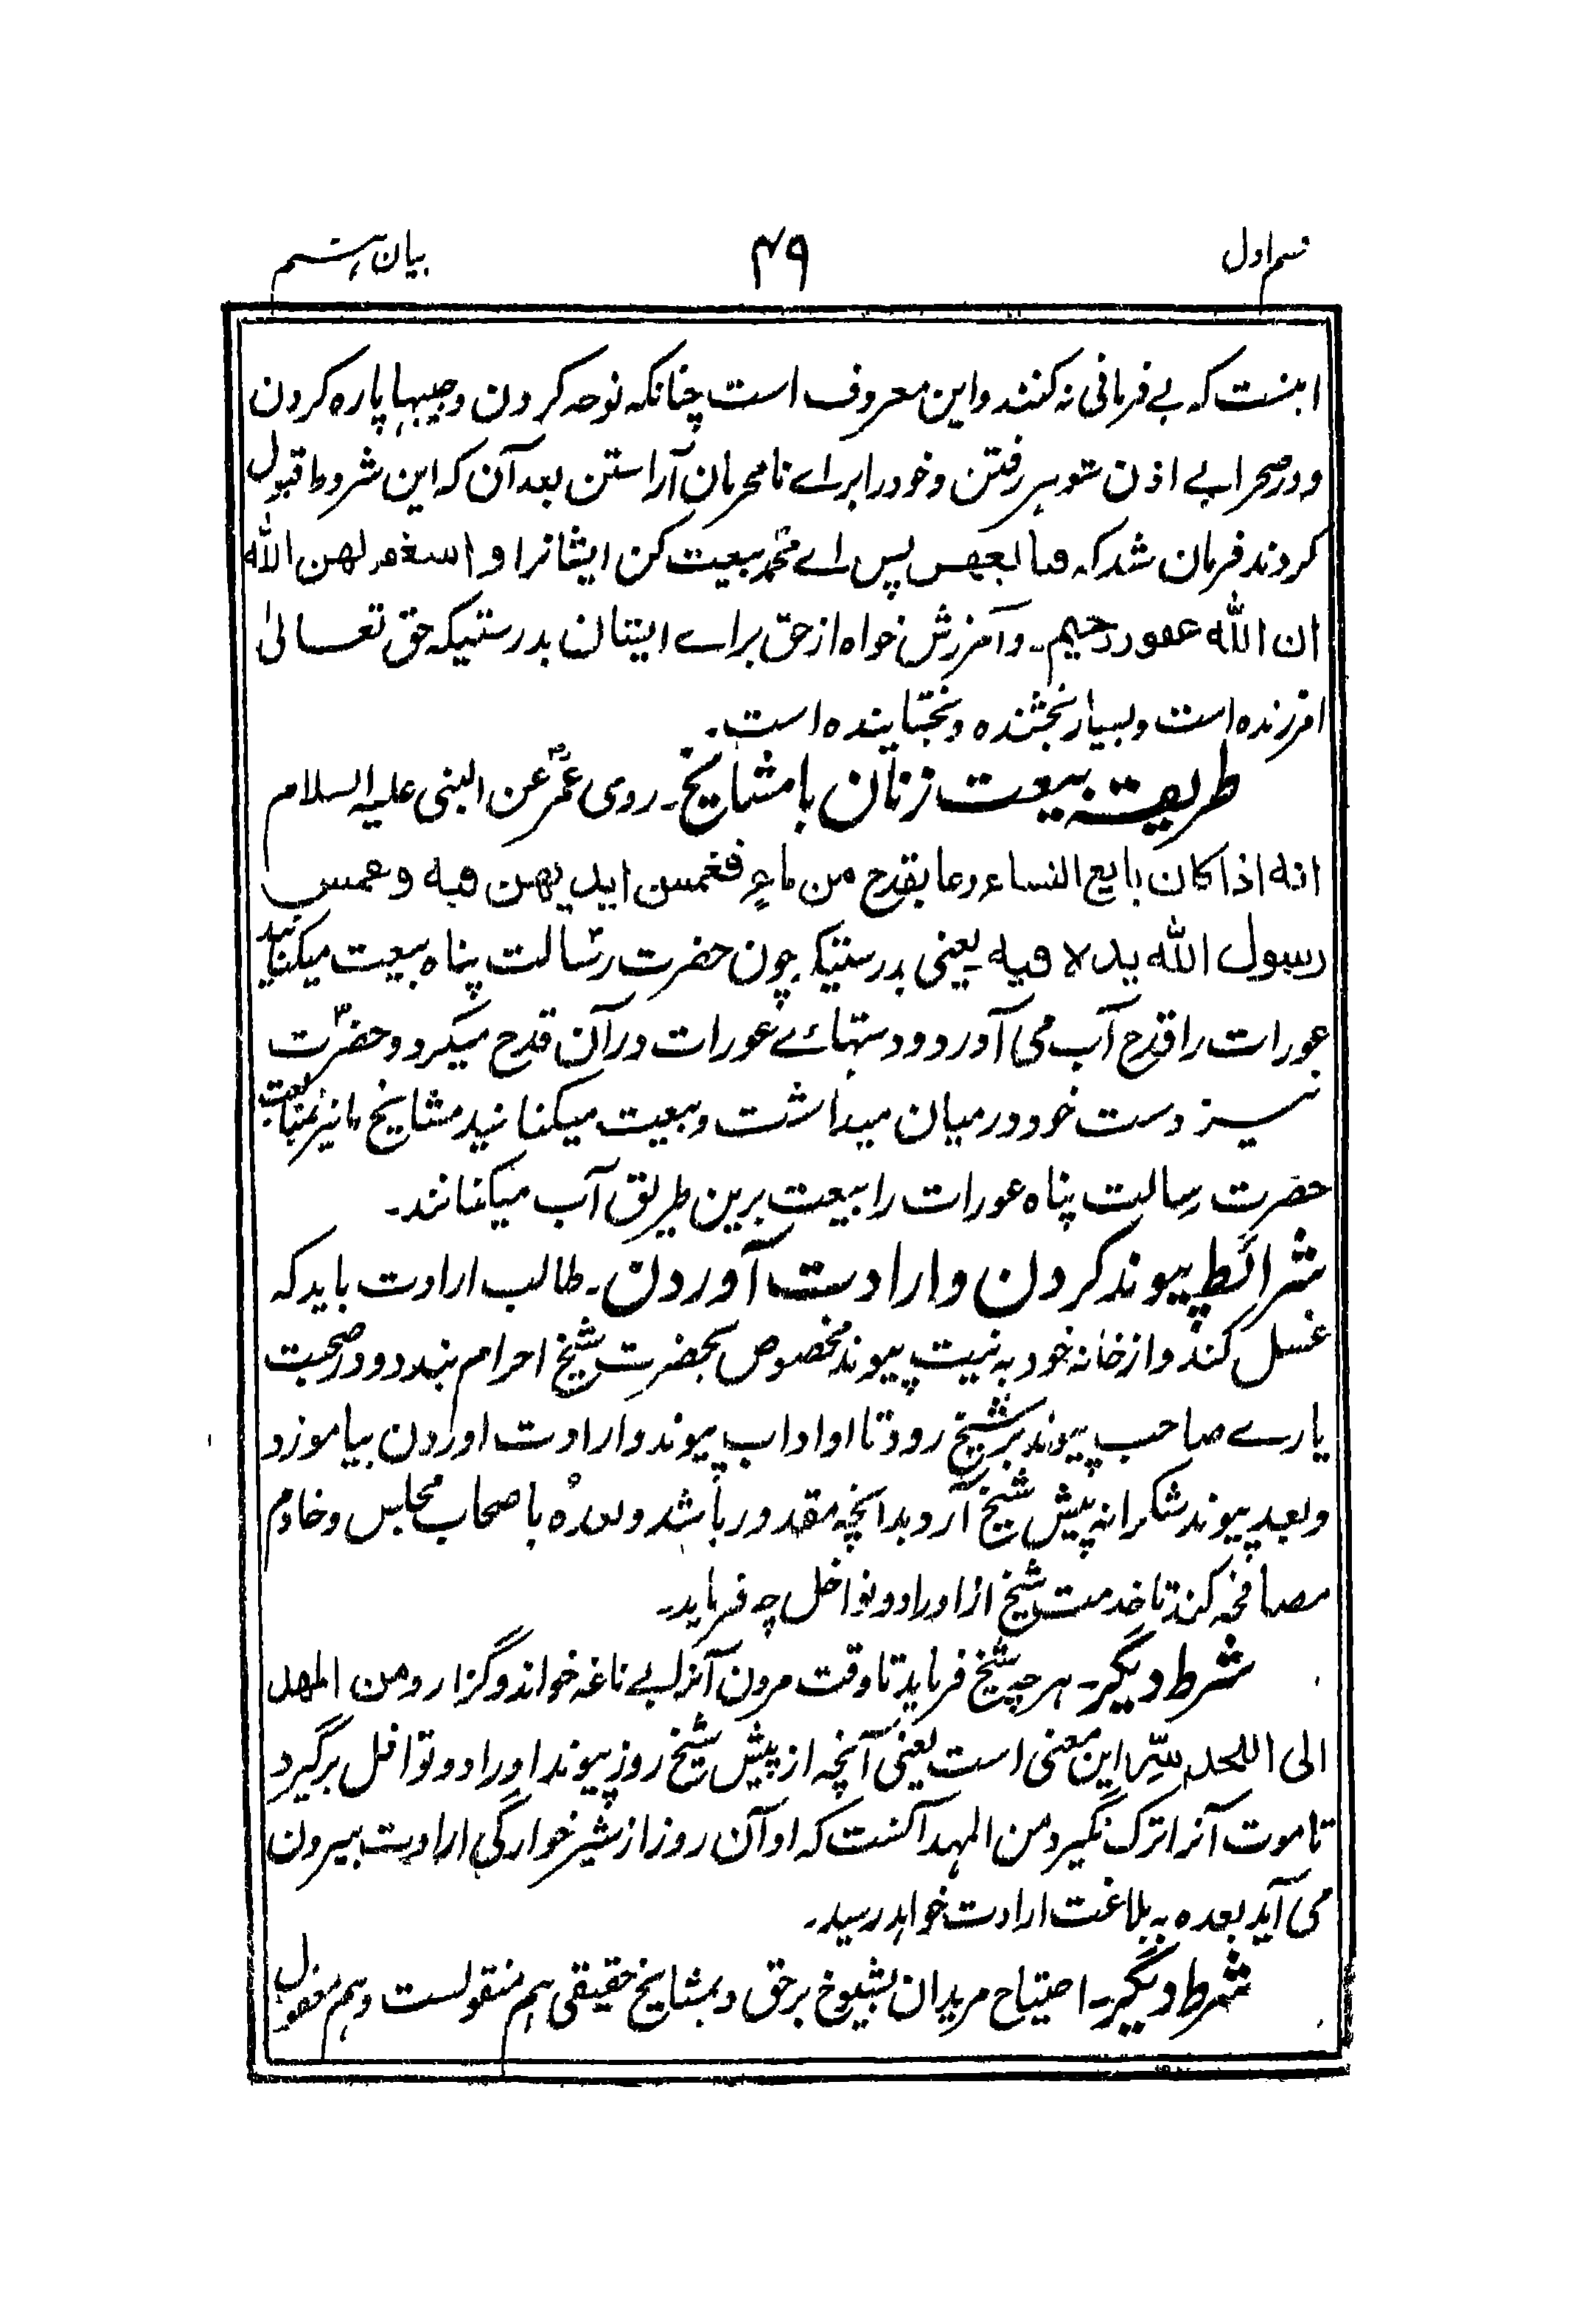 قسم اول
۴۹
بیان ہشتم
اینست کہ بے فرمانی نہ کنند و این معروف است چنانکہ نوحہ کردن و جیبہا پارہ کردن
و در صحرا بے اذن شوہر رفتن و خود را براے نامحرمان آراستن بعد آن کہ این شروط قبول
کردند فرمان شد کہ فبایعھن پس اے محمد بیعت کن ایشانرا و استغفر لھن الله
ان الله غفور رحیم۔ و آمرزش خواہ از حق براے ایشان بدرستیکہ حق تعالیٰ
امرزندہ است و بسیار بخشندہ و بخشایندہ است۔
طریقہ بیعت زنان با مشایخ۔ روی عمرؓ عن النبی علیہ السلام
انه اذا کان بایع النساء دعا بقدح من ماءٍ فغمسن ایدیھن فیه و غمس
رسول الله یدہ فیه یعنی بدرستیکہ چون حضرت رسالت پناہ بیعت میکنانید
عورات را قدح آب می آورد و دستہائے عورات در آن قدح میکرد و حضرتؐ
نیز دست خود درمیان میداشت و بیعت میکنانید مشایخ ما نیز بمتابعت
حضرت رسالت پناہ عورات را بیعت برین طریق آب میکنانند۔
شرائط پیوند کردن و ارادت آوردن۔ طالب ارادت باید کہ
غسل کند و از خانہ خود بہ نیت پیوند مخصوص بحضرت شیخ احرام بندد و در صحبت
یارے صاحب پیوند بر شیخ رود تا او اداب پیوند و ارادت اوردن بیاموزد
و بعد پیوند شکرانہ پیش شیخ آرد بدانچہ مقدور باشد و بعدہ با صحاب مجلس و خادم
مصافحہ کند تا خدمت شیخ از اوراد و نوافل چہ فرماید۔
شرط دیگر۔ ہرچہ شیخ فرماید تا وقت مردن آنرا بے ناغہ خواند و گزارد و من المھد
الی اللحد سرّ این معنی است یعنی آنچہ از پیش شیخ روز پیوند اوراد و نوافل برگیرد
تا موت آنرا ترک نگیرد من المہد آنست کہ او آن روز از شیر خوارگی ارادت بیرون
می آید بعدہ بہ بلاغت ارادت خواہد رسید۔
شرط دیگر۔ احتیاج مریدان بشیوخ برحق و بمشایخ حقیقی ہم منقولست و ہم معقول